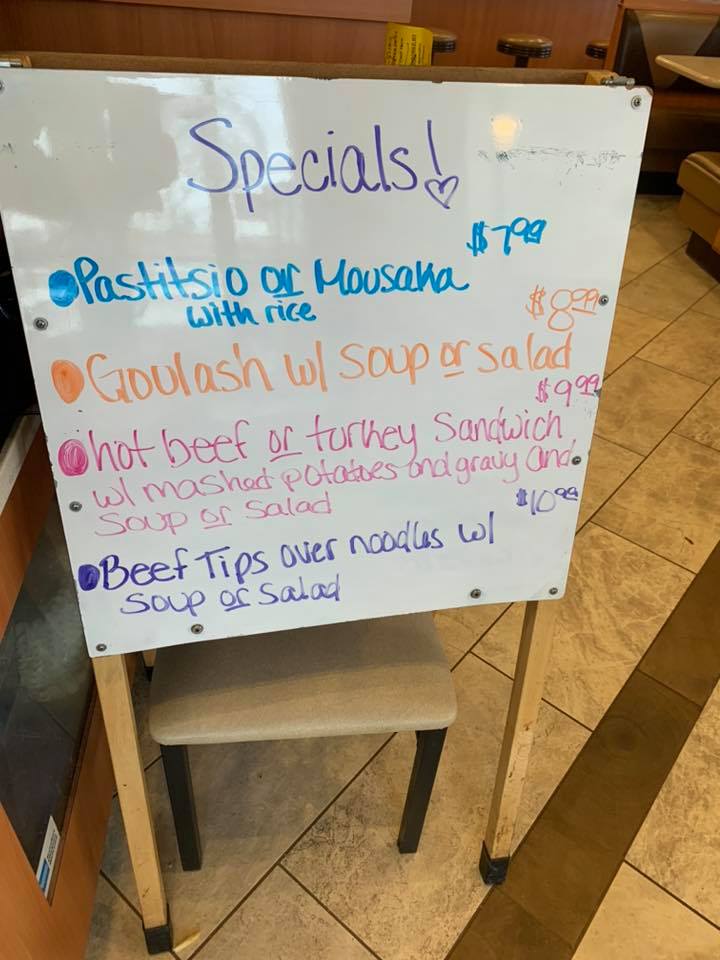 Specials!
$7.99
Pastitsio or Mousaka
with rice
$8.99
Goulash w/ soup or salad
$9.99
hot beef or turkey Sandwich
w/ mashed potatoes and gravy and
soup or salad
$10.99
Beef Tips over noodles w/
soup or salad